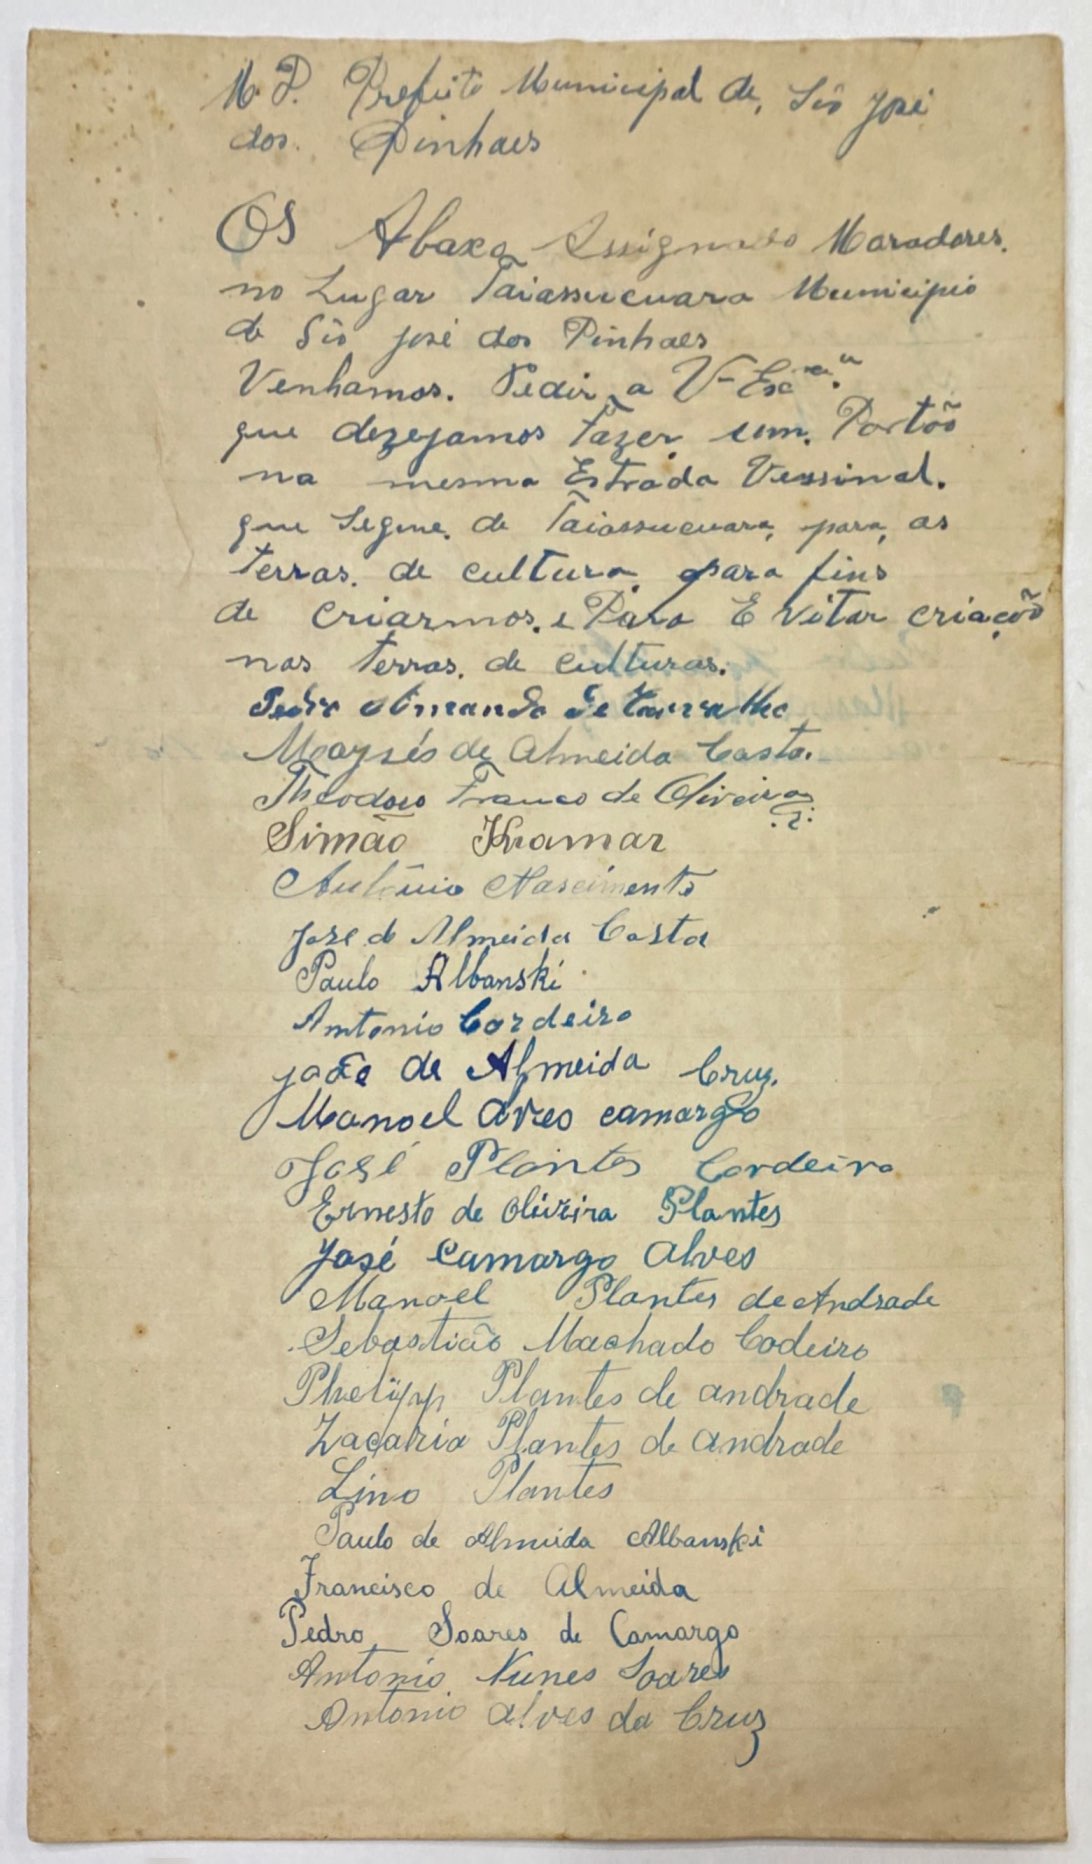 M. D. Prefeito Municipal de, São José
dos. Pinhaes
Os Abaxo Assignado Moradores.
no Lugar Taiassucuara Municipio
de São José dos Pinhaes
Venhamos. Pedir a V-Exc
que dezejamos Fazer um. Portão
na mesma Estrada Vessinal.
que Segue. de Taiassucuara, para, as
terras. de cultura para fins
de criarmos. e Para Evitar criação
nas terras. de culturas.
Pedro de
Moysés de Almeida Costa.
Theodoro Franco de Oliveira
Simão Kramar
Antônio Nascimento
José de Almeida Costa
Paulo Albanski
Antonio Cordeiro
de Almeida Cruz.
Manoel camargo
José Plantes Cordeiro
Ernesto de Oliveira Plantes
José Camargo Alves
Manoel Plantes de Andrade
Sebastião Machado Codeiro
Plantes de andrade
Zacaria Plantes de andrade
Lino Plantes
Paulo de Almeida Albanski
Francisco de Almeida
Pedro Soares de Camargo
Antonio Nunes Soares
Antonio alves da Cruz